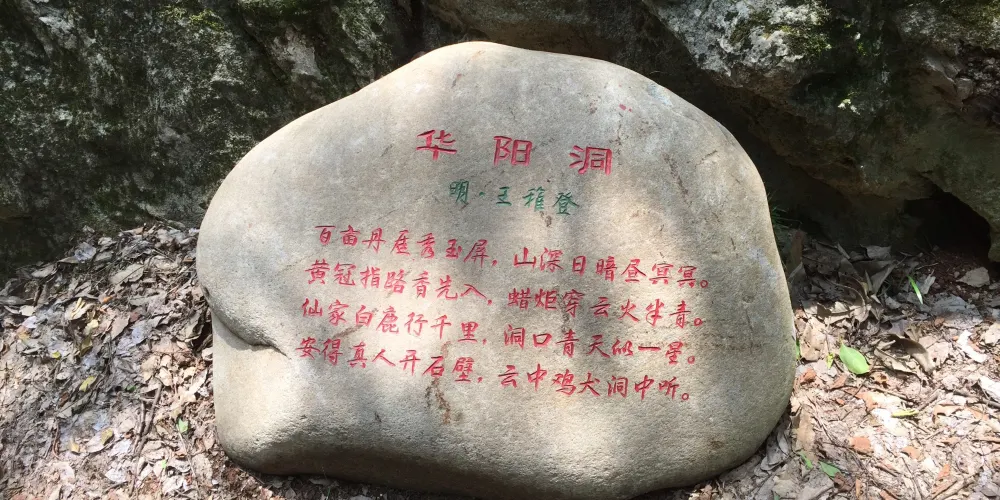 华阳洞
明·王稚登
百亩丹居秀玉屏，山深日暗昼冥冥。
黄冠指路香先入，蜡炬穿云火半青。
仙家白鹿行千里，洞口青天似一星。
安得真人开石壁，云中鸡犬洞中听。